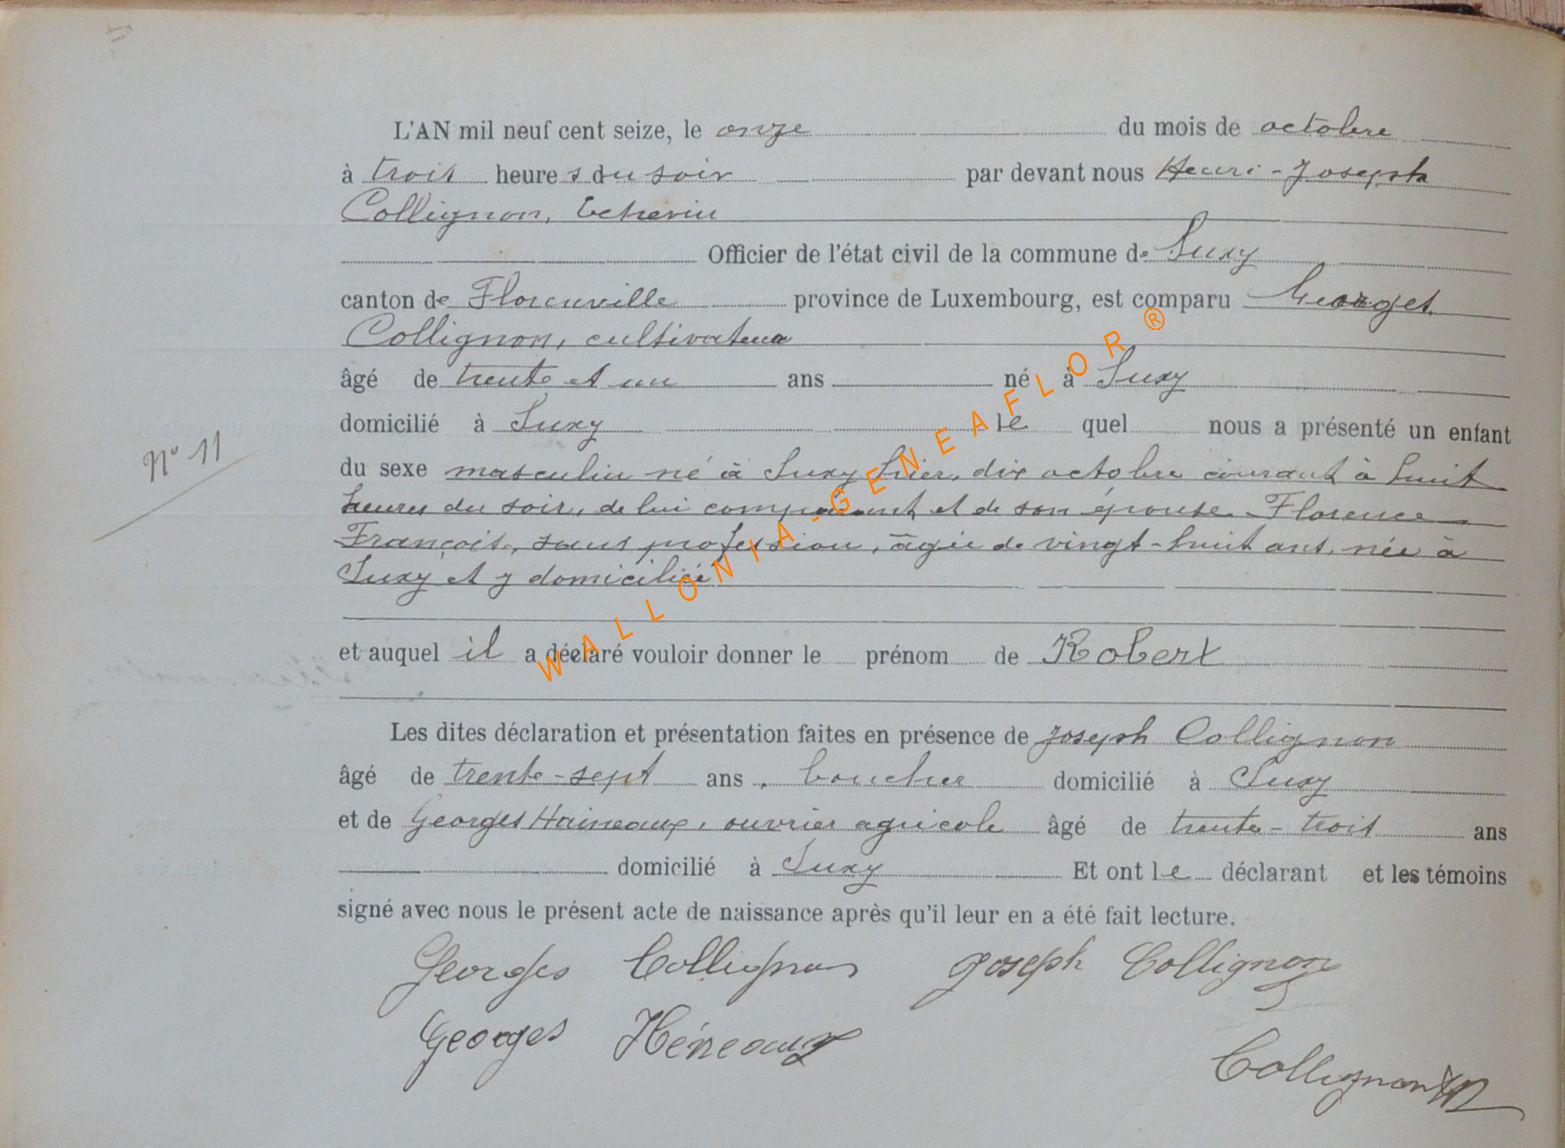 L'AN mil neuf cent seize, le onze du mois de octobre
à trois heures du soir par devant nous Henri-Joseph
Collignon, Echevin
Officier de l'état civil de la commune de Suxy
canton de Florenville province de Luxembourg, est comparu Georges
Collignon, cultivateur
âgé de trente et un ans né à Suxy
domicilié à Suxy le quel nous a présenté un enfant
N° 11
du sexe masculin né à Suxy hier, dix octobre courant à huit
heures du soir, de lui comparant et de son épouse Florence
François, sans profession, âgée de vingt-huit ans, née à
Suxy et y domiciliée
et auquel il a déclaré vouloir donner le prénom de Robert
Les dites déclaration et présentation faites en présence de Joseph Collignon
âgé de trente-sept ans, boucher domicilié à Suxy
et de Georges Haineaux, ouvrier agricole âgé de trente-trois ans
domicilié à Suxy Et ont le déclarant et les témoins
signé avec nous le présent acte de naissance après qu'il leur en a été fait lecture.
Georges Collignon Joseph Collignon
Georges Héneaux
Collignon
WALLONIA-GENEAFLOR®